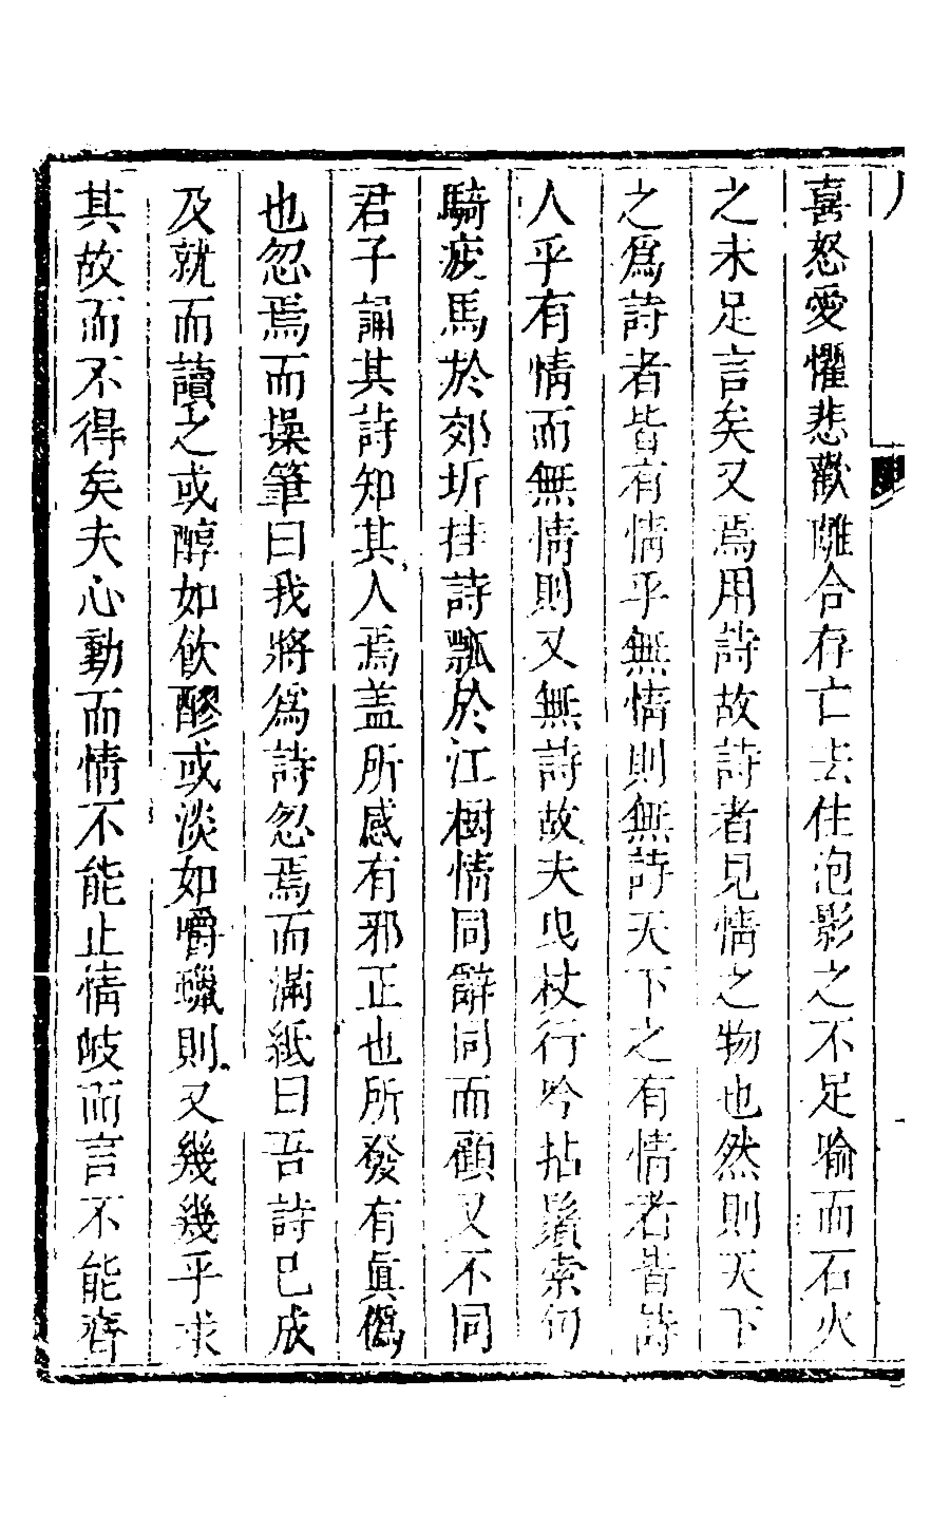 喜怒愛懼悲歡離合存亡去住泡影之不足喻而石火
之未足言矣又焉用詩故詩者見情之物也然則天下
之爲詩者皆有情乎無情則無詩天下之有情者皆詩
人乎有情而無情則又無詩故夫曳杖行吟拈鬚索句
騎疲馬於郊圻挂詩瓢於江樹情同辭同而顧又不同
君子誦其詩知其人焉盖所感有邪正也所發有眞僞
也忽焉而操筆曰我將爲詩忽焉而滿紙曰吾詩已成
及就而讀之或醇如飮醪或淡如嚼蠟則又幾幾乎求
其故而不得矣夫心動而情不能止情岐而言不能齊